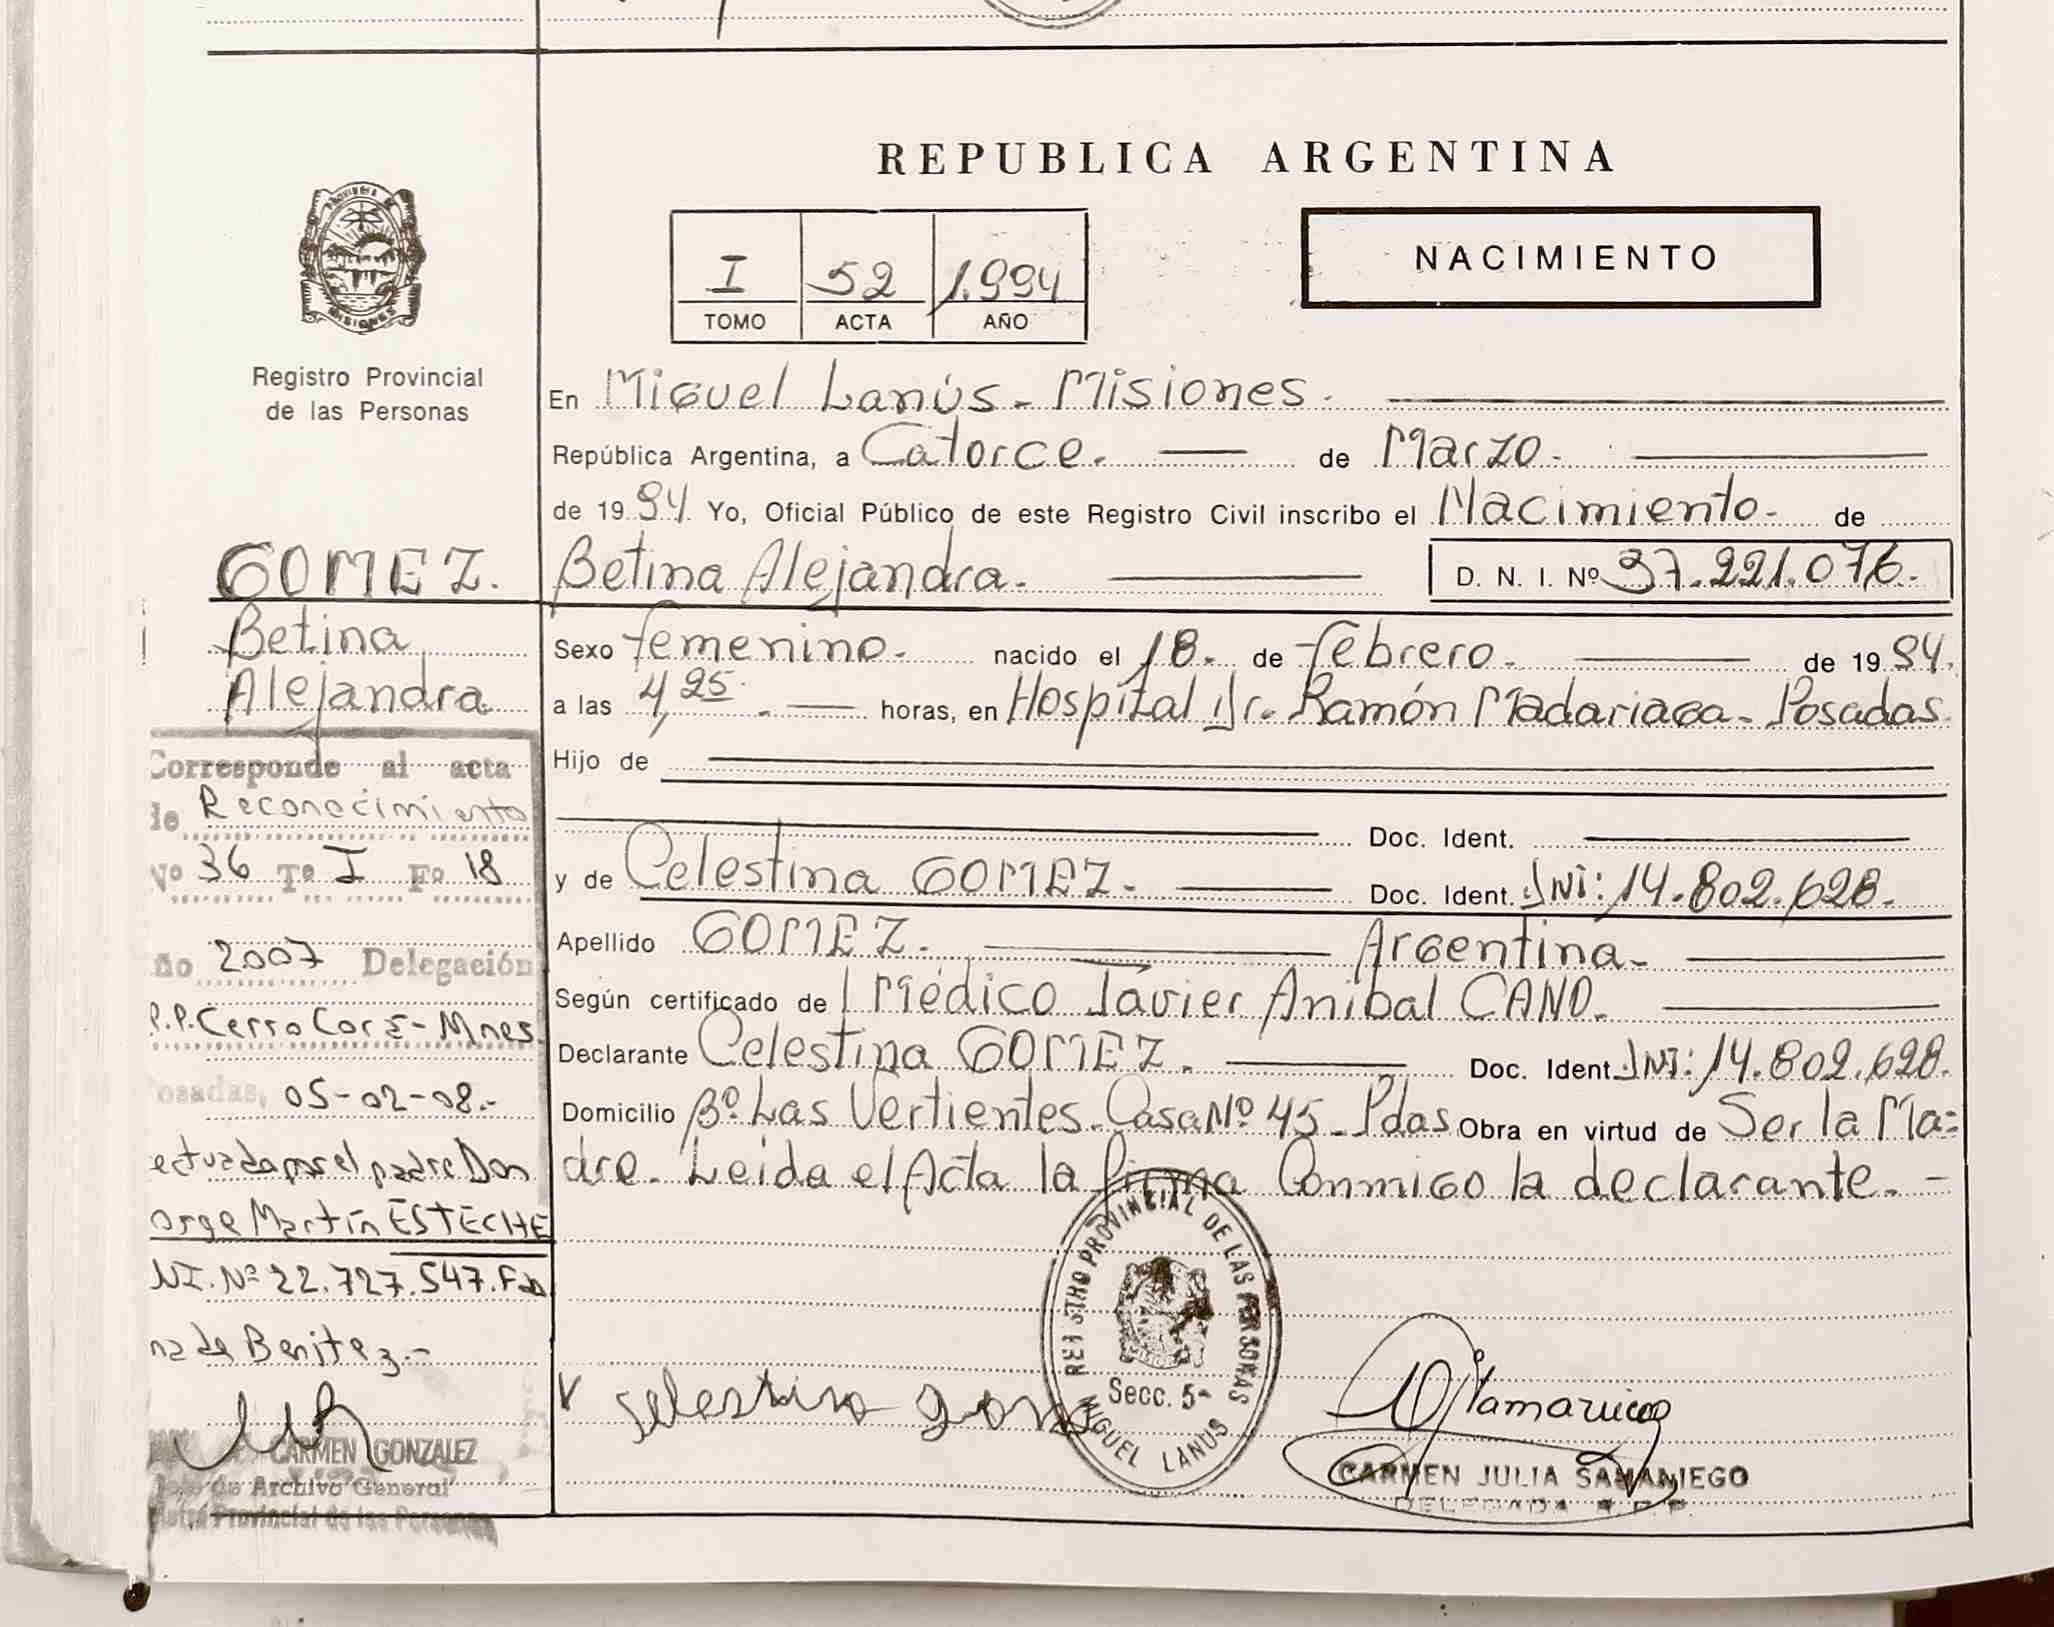 REPUBLICA ARGENTINA
I 52 1.994
TOMO ACTA AÑO
NACIMIENTO
PROVINCIA DE
MISIONES
Registro Provincial
de las Personas
En Miguel Lanús - Misiones.
República Argentina, a Catorce. de Marzo.
de 1994. Yo, Oficial Público de este Registro Civil inscribo el Nacimiento - de
Betina Alejandra. D. N. I. Nº 37.221.076.
Sexo femenino. nacido el 18. de febrero. de 1994.
a las 4,25 horas, en Hospital Dr. Ramón Madariaga - Posadas.
Hijo de
Doc. Ident.
y de Celestina GOMEZ. Doc. Ident. DNI: 14.802.628.
Apellido GOMEZ. Argentina -
Según certificado de Médico Javier Anibal CANO.
Declarante Celestina GOMEZ. Doc. Ident. DNI: 14.802.628.
Domicilio Bº. Las Vertientes - Casa Nº 45 - Pdas. Obra en virtud de Ser la Ma=
dre. Leida el Acta la firma Conmigo la declarante. -
GOMEZ.
Betina
Alejandra.
Corresponde al acta
de Reconocimiento
Nº 36 Tº I Fº 18
ño 2007 Delegación
P.P. Cerro Corá - Mnes.
osadas, 05-02-08.-
ectuada por el padre Don
orge Martín ESTECHE
NI. Nº 22.727.547.
na de Benitez.-
CARMEN GONZALEZ
Jefe de Archivo General
Provincial de las Personas
Celestina
REGISTRO PROVINCIAL DE LAS PERSONAS
Secc. 5ª
MIGUEL LANUS
CARMEN JULIA SAMANIEGO
DELEGADA R.P.P.